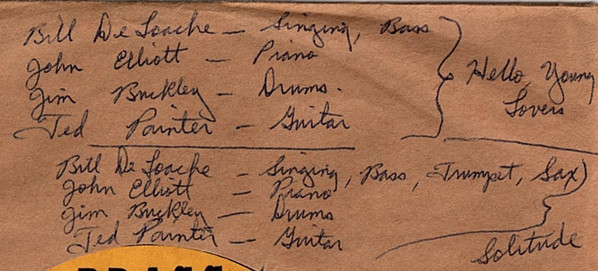 Bill De Loache – Singing, Bass
John Elliott – Piano
Jim Buckley – Drums.
Ted Painter – Guitar
Hello, Young
Lovers
Bill De Loache – Singing, Bass, Trumpet, Sax
John Elliott – Piano
Jim Buckley – Drums
Ted Painter – Guitar
Solitude